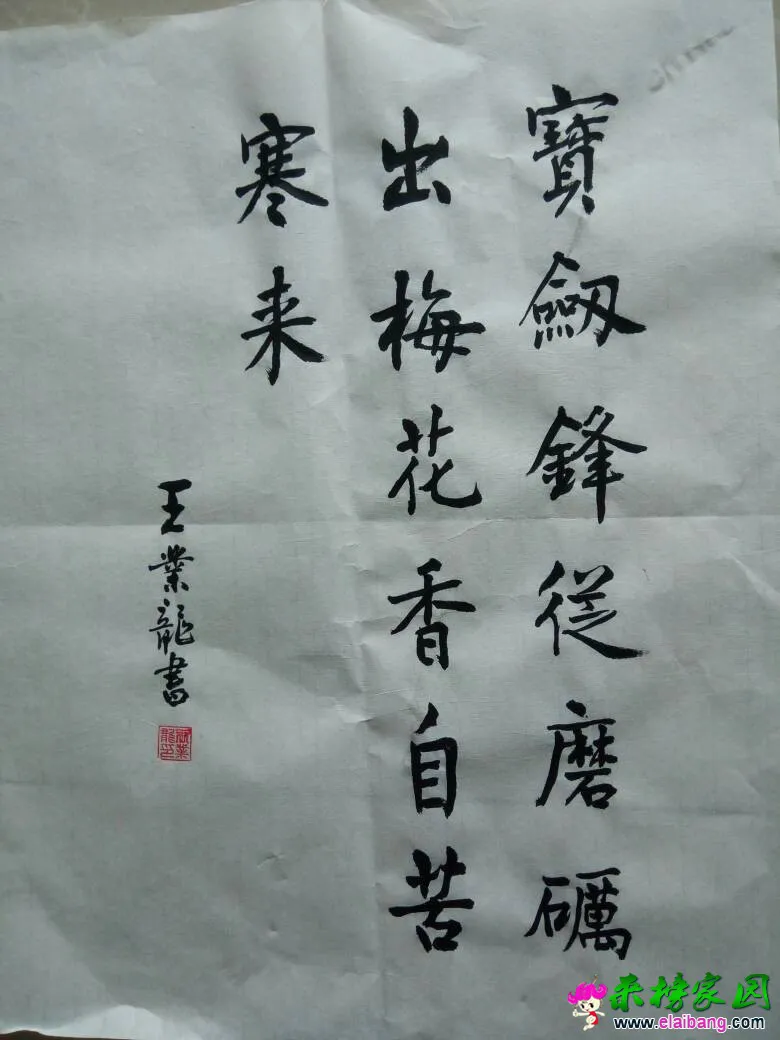 寶劔鋒從磨礪
出梅花香自苦
寒来
王業龍書
来榜家园
www.elaibang.com